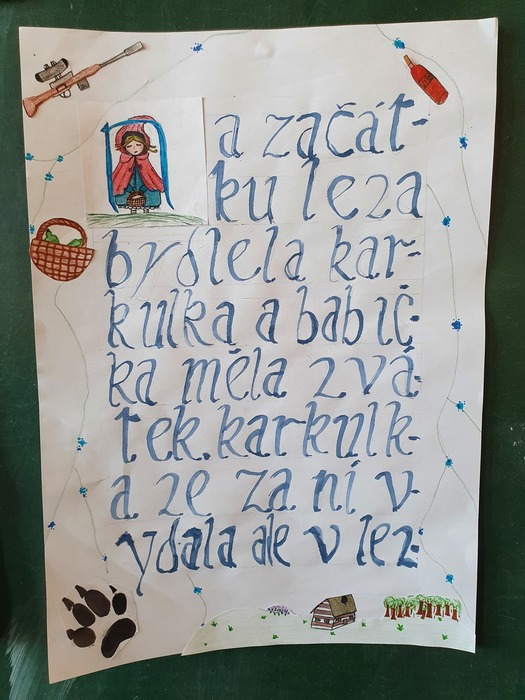 Na začát-
ku lesa
bydlela kar-
kulka a babič-
ka měla svá-
tek. karkulk-
a se za ní v-
ydala ale v les-